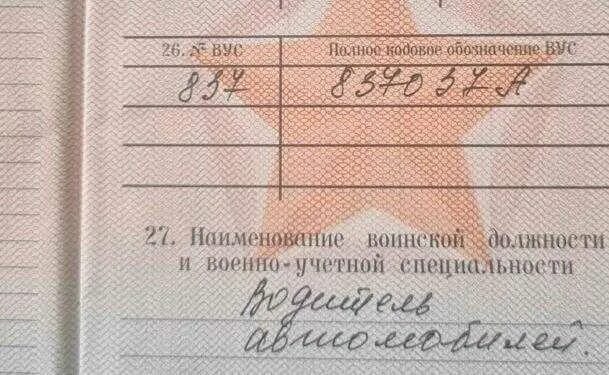 26. № ВУС Полное кодовое обозначение ВУС
837 837037А
27. Наименование воинской должности
и военно-учетной специальности
Водитель
автомобилей.